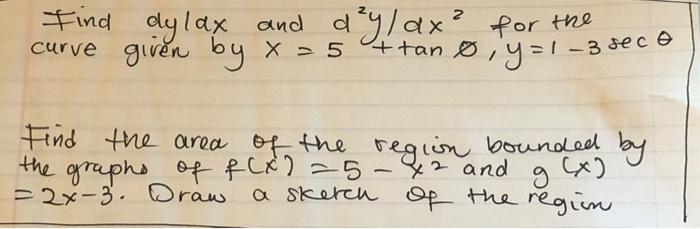 Find dy/dx and d²y/dx² for the
curve given by x = 5 + tan θ, y = 1 - 3 sec θ
Find the area of the region bounded by
the graphs of f(x) = 5 - x² and g(x)
= 2x-3. Draw a sketch of the region